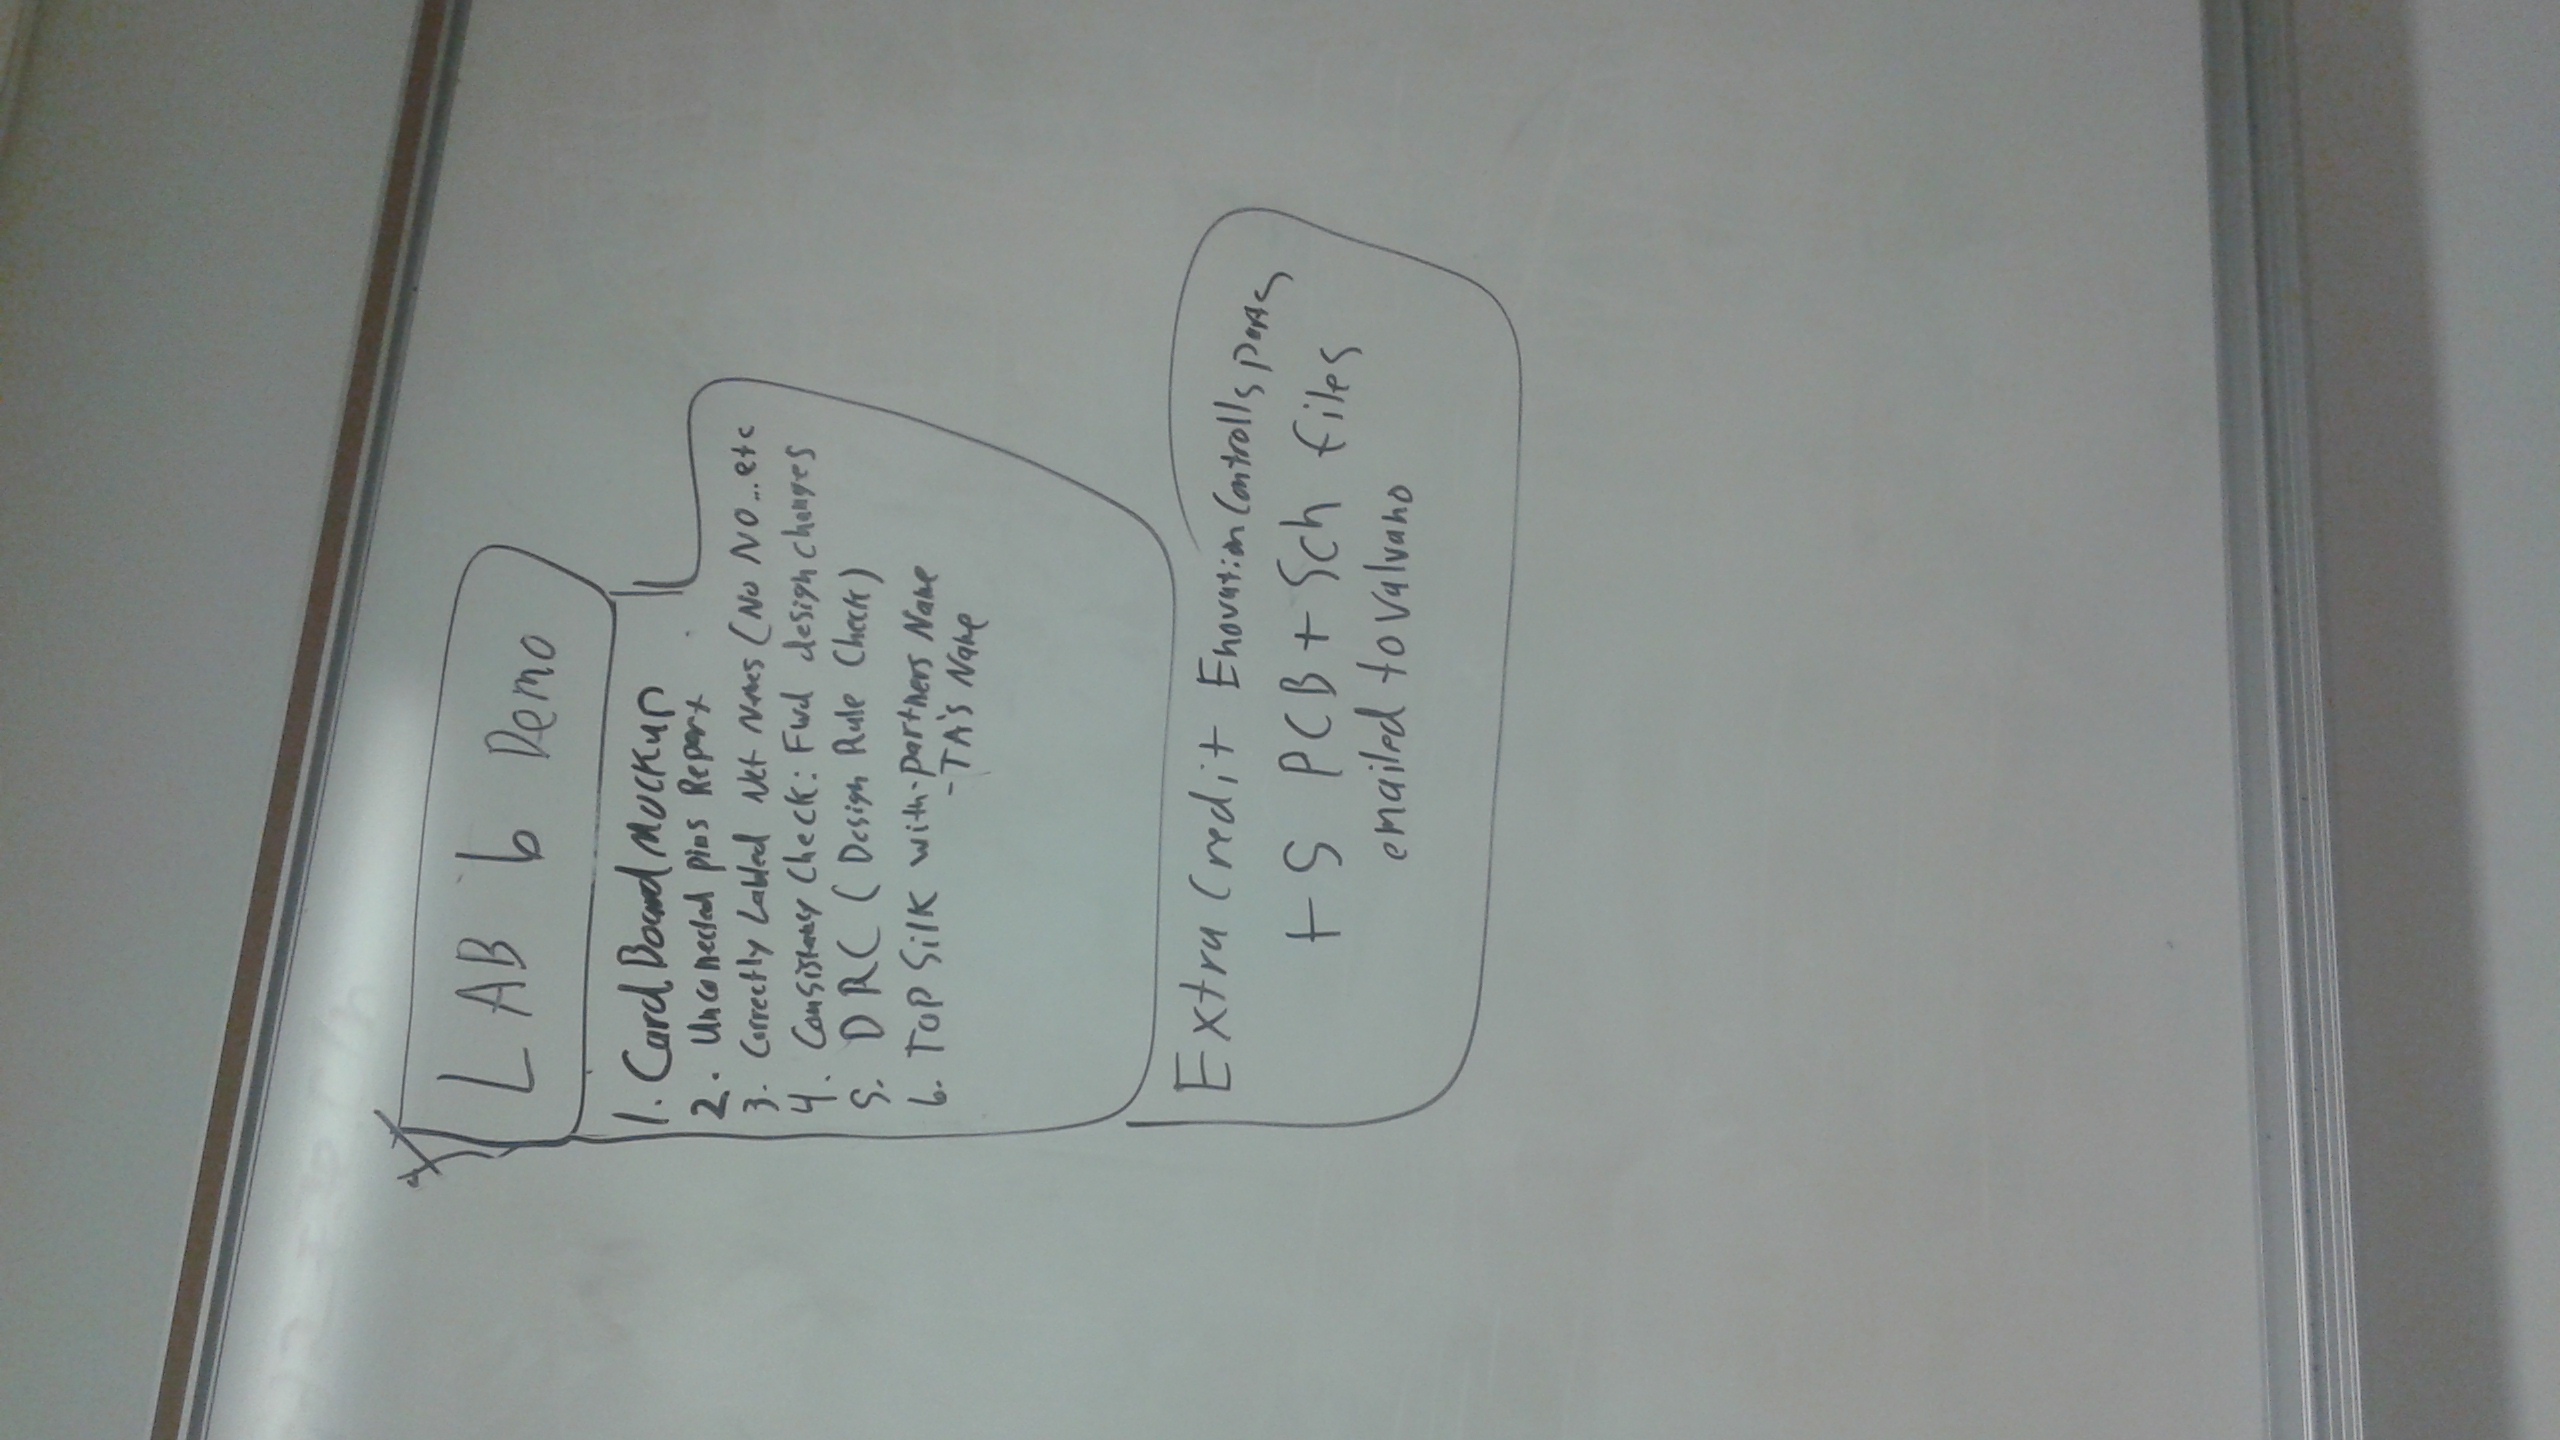 LAB 6 Demo
1. CardBoard Mockup
2. Unconected pins Report
3. Correctly Labled Net Names (No NO...etc
4. Consistancy Check: Fwd design changes
5. DRC (Design Rule Check)
6. Top Silk with - partners Name
- TA's Name
Extra Credit Enovation Controlls parts
+5 PCB + Sch files
emailed to Valvano